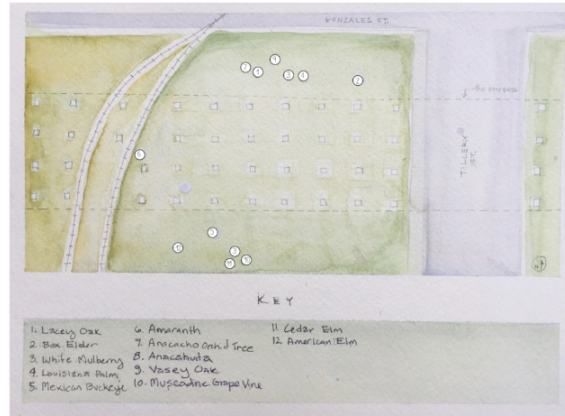 GONZALES ST.
TILLERY ST.
KEY
1. Lacey Oak
2. Box Elder
3. White Mulberry
4. Louisiana Palm
5. Mexican Buckeye
6. Amaranth
7. Anacacho Orchid Tree
8. Anacahuita
9. Vasey Oak
10. Muscadine Grape Vine
11 Cedar Elm
12 American Elm